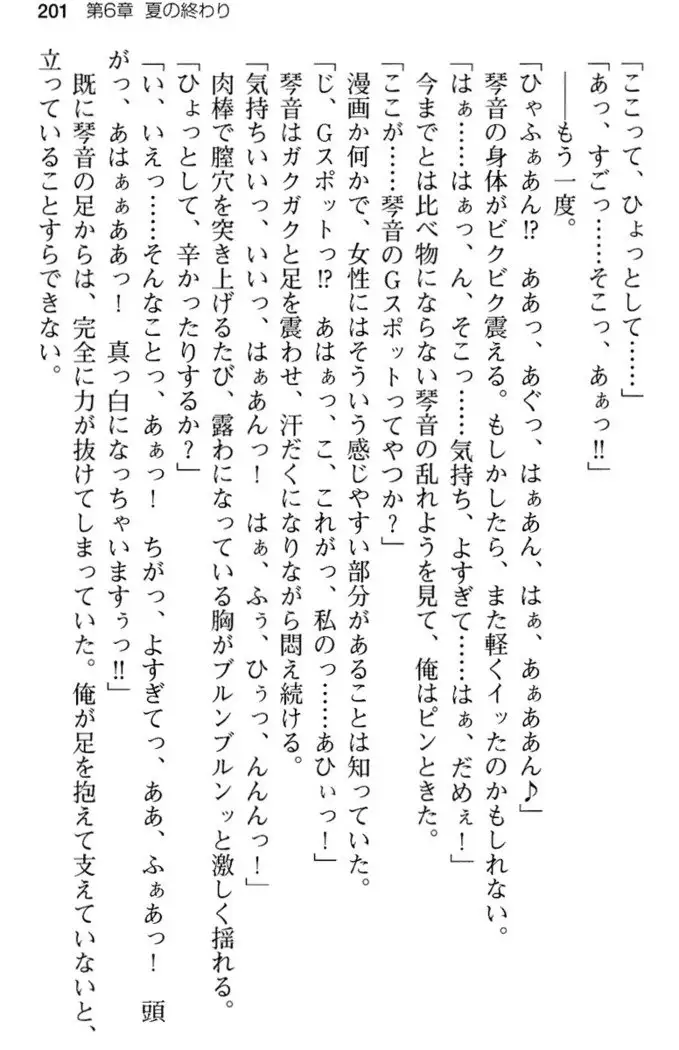 201 第6章 夏の終わり
「ここって、ひょっとして……」
「あっ、すごっ……そこっ、あぁっ!!」
――もう一度。
「ひゃふぁあん!? ああっ、あぐっ、はぁあん、はぁ、あぁああん♪」
琴音の身体がビクビク震える。もしかしたら、また軽くイッたのかもしれない。
「はぁ……はぁっ、ん、そこっ……気持ち、よすぎて……はぁ、だめぇ！」
今までとは比べ物にならない琴音の乱れようを見て、俺はピンときた。
「ここが……琴音のGスポットってやつか？」
漫画か何かで、女性にはそういう感じやすい部分があることは知っていた。
「じ、Gスポットっ!? あはぁっ、こ、これがっ、私のっ……あひぃっ！」
琴音はガクガクと足を震わせ、汗だくになりながら悶え続ける。
「気持ちいいっ、いいっ、はぁあんっ！ はぁ、ふぅ、ひぅっ、んんんっ！」
肉棒で膣穴を突き上げるたび、露わになっている胸がブルンブルンッと激しく揺れる。
「ひょっとして、辛かったりするか？」
「い、いえっ……そんなことっ、あぁっ！ ちがっ、よすぎてっ、ああ、ふぁあっ！ 頭
がっ、あはぁぁああっ！ 真っ白になっちゃいますぅっ!!」
既に琴音の足からは、完全に力が抜けてしまっていた。俺が足を抱えて支えていないと、
立っていることすらできない。